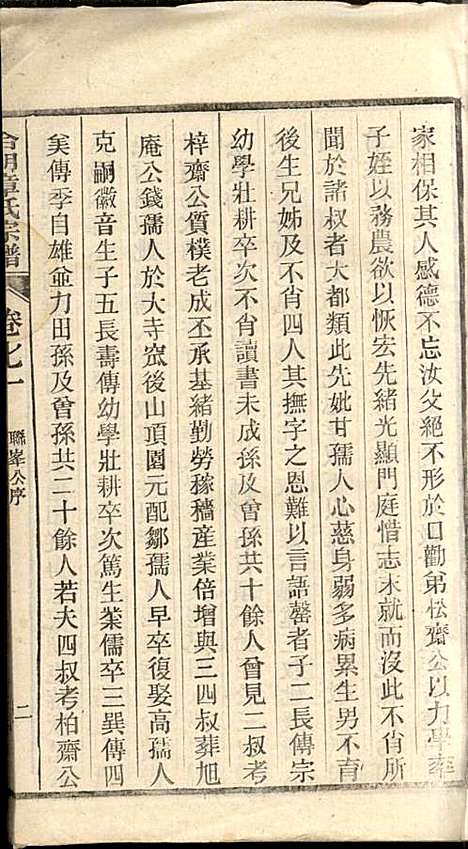 家相保其人感德不忘汝父絕不形於口勸弟松齋公以力學率
子姪以務農欲以恢宏先緒光顯門庭惜志未就而沒此不肖所
聞於諸叔者大都類此先妣甘孺人心慈身弱多病累生男不育
後生兄姊及不肖四人其撫字之恩難以言語罄者子二長傳宗
幼學壯耕卒次不肖讀書未成孫及曾孫共十餘人曾見二叔考
梓齋公質樸老成丕承基緒勤勞稼穡産業倍增與三四叔葬旭
庵公錢孺人於大寺窊後山頂園元配鄒孺人早卒復娶高孺人
克嗣徽音生子五長壽傳幼學壯耕卒次篤生業儒卒三巽傳四
美傳季自雄並力田孫及曾孫共二十餘人若夫四叔考柏齋公
合朋章氏宗譜
卷之一
聯峯公序
二